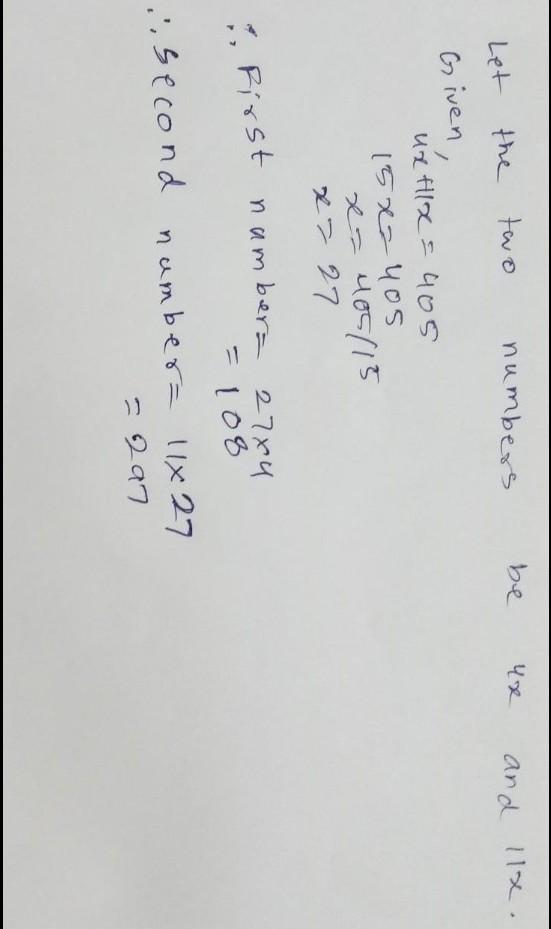 Let the two numbers be 4x and 11x.
Given,
4x+11x= 405
15x= 405
x= 405/15
x= 27
∴ First number= 27x4
= 108
∴ Second number= 11x27
= 297